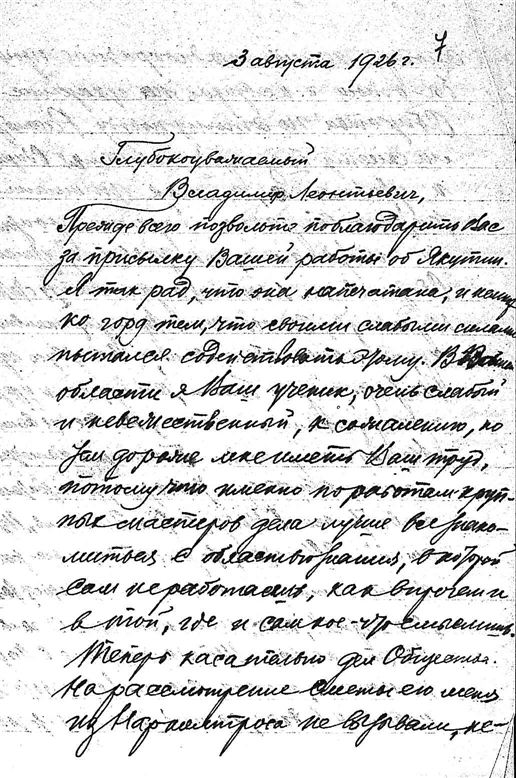 7
3 августа 1926 г.
Глубокоуважаемый
Владимир Леонтьевич,
Прежде всего позвольте поблагодарить Вас
за присылку Вашей работы об Якутии.
Я так рад, что она напечатана, и
ко горд тем, что своими слабыми силами
пытался содействовать этому. В
области я Ваш ученик, очень слабый
и невежественный, к сожалению, но
тем дороже мне иметь Ваш труд,
потому что именно по работам круп-
ных мастеров дела лучше всего знако-
миться с областью знания, в которой
сам не работаешь, как впрочем и
в той, где и сам кое-что смыслишь.
Теперь касательно дел Общества.
На рассмотрение сметы его меня
из Наркомпроса не вызывали, не-